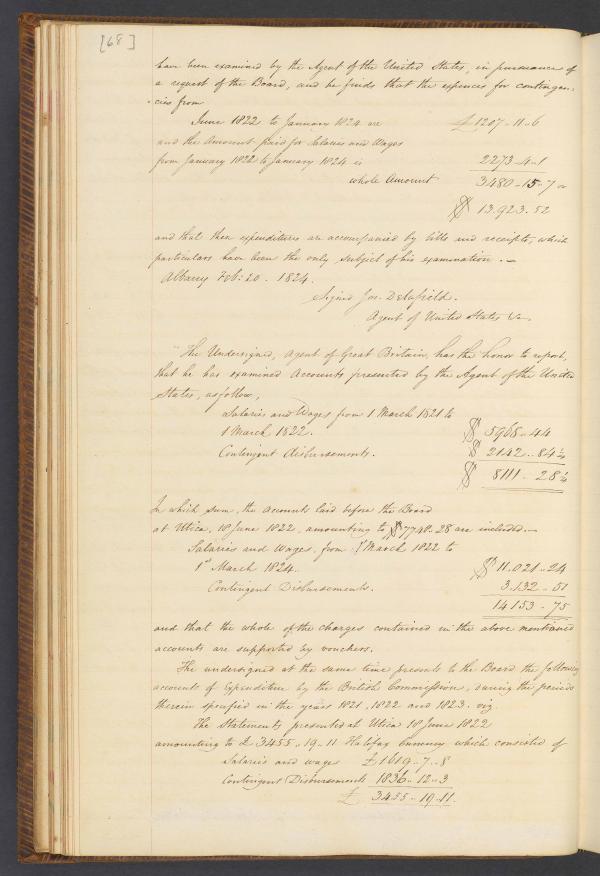 [68]
have been examined by the Agent of the United States, in pursuance of
a request of the Board, and he finds that the expences for contingen-
-cies from
June 1822 to January 1824 are £ 1207-11-6
and the Amount paid for Salaries and Wages
from January 1822 to January 1824 is 2273-4-1
whole Amount 3480-15-7
$ 13.923.52
and that these expenditures are accompanied by bills and receipts, which
particulars have been the only subject of his examination.
Albany Feb: 20. 1824.
Signed Jos. Delafield.
Agent of United States &c
"The Undersigned, Agent of Great Britain, has the honor to report,
that he has examined Accounts presented by the Agent of the United
States, as follow,
Salaries and Wages from 1 March 1821 to
1 March 1822. $ 5968-44
Contingent disbursements. $ 2142-84¼
$ 8111-28¼
In which sum, the accounts laid before the Board
at Utica, 18 June 1822, amounting to $7748-28 are included.
Salaries and Wages, from 1st March 1822 to
1st March 1824. $ 11.021-24
Contingent Disbursements. 3.132-51
14153-75
and that the whole of the charges contained in the above mentioned
accounts are supported by vouchers.
The undersigned at the same time presents to the Board the following
accounts of Expenditure by the British Commission, during the periods
therein specified in the years 1821, 1822 and 1823. viz.
The Statements presented at Utica 18 June 1822
amounting to £3455-19-11 Halifax Currency which consisted of
Salaries and wages £1619-7-8
Contingent Disbursements 1836-12-3
£ 3455-19-11.